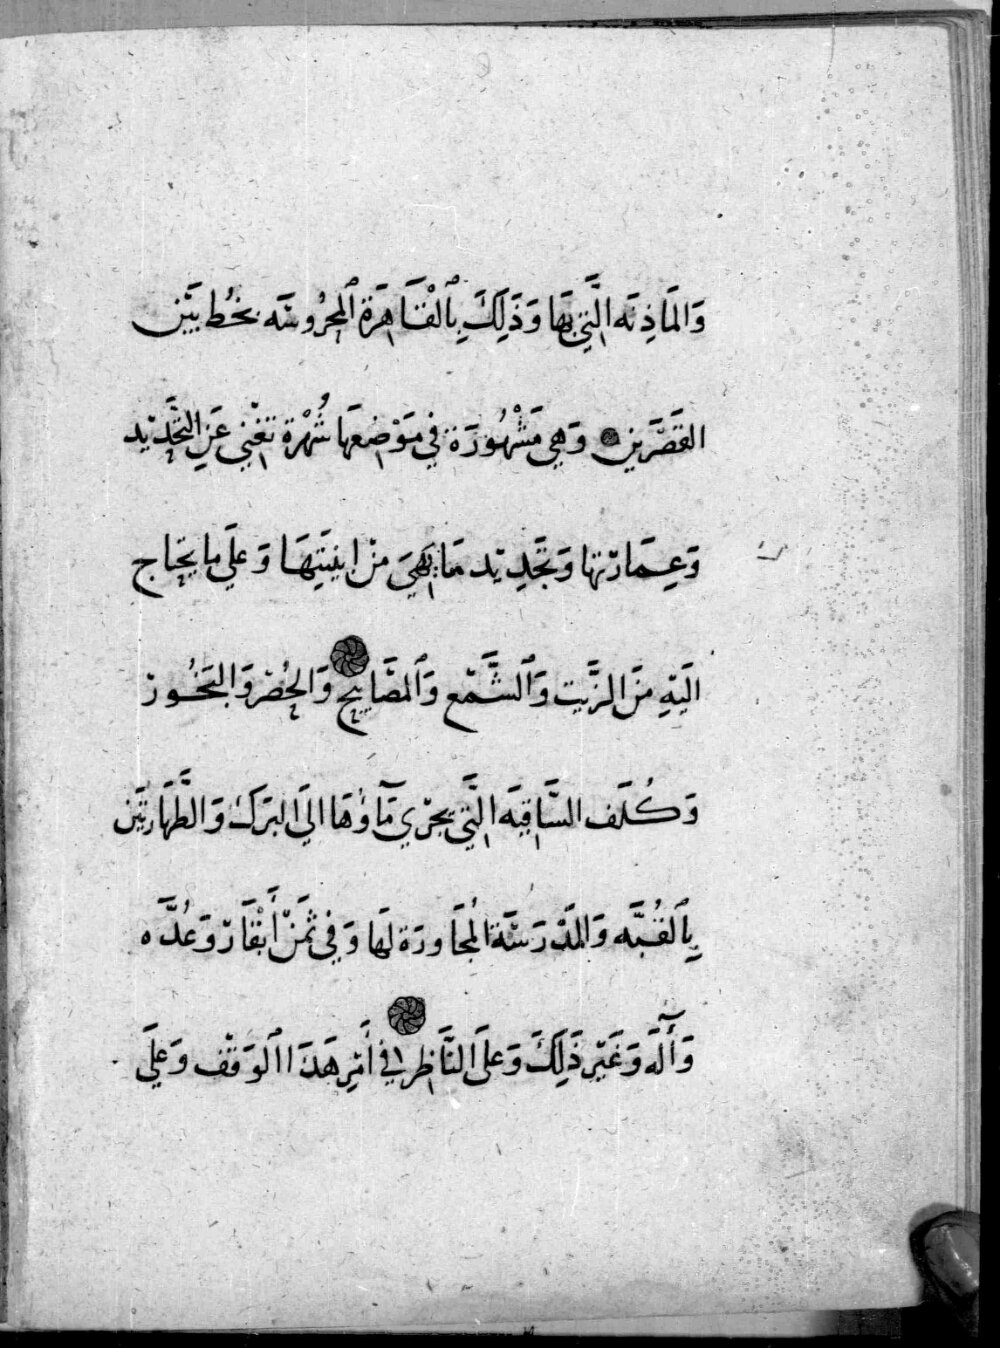 وَالمَاذِنَه الَّتِي بِهَا وَذَلِكَ بِٱلْقَاهِرَةِ ٱلمَحْرُوسَه بِخُطِ بَيْنَ
القَصْرَيْنِ وَهِيَ مَشْهُورَة فِي مَوْضِعِهَا شُهْرَة تُغْنِي عَنِ التَّحْدِيْد
وَعِمَارَتِهَا وَتَجْدِيْد مَا يَهِيَ مِنْ ابنِيَتِهَا وَعَلَي مَا يَحتَاج
الَيْهِ مِنَ الزَّيْت وَٱلشَّمْع وَٱلمَصَابِيْح وَالحُصْرِ وَالبَخُوْر
وَكُلَف السَّاقِيَه الَّتِي يَجْرِي مَآؤُهَا الَي البِرَكَ وَالطَّهَارَتَيْنِ
بِٱلقُبَّه وَالمَدْرَسَة المُجَاوِرَة لَهَا وَفِي ثَمَنْ أَبْقَارْ وَعُدَّه
وَأَلَه وَغَيْرِ ذَلِكَ وَعَلَى النَّاظِرِ فِي أَمْرِ هَذَا الوَقْف وَعَلَي